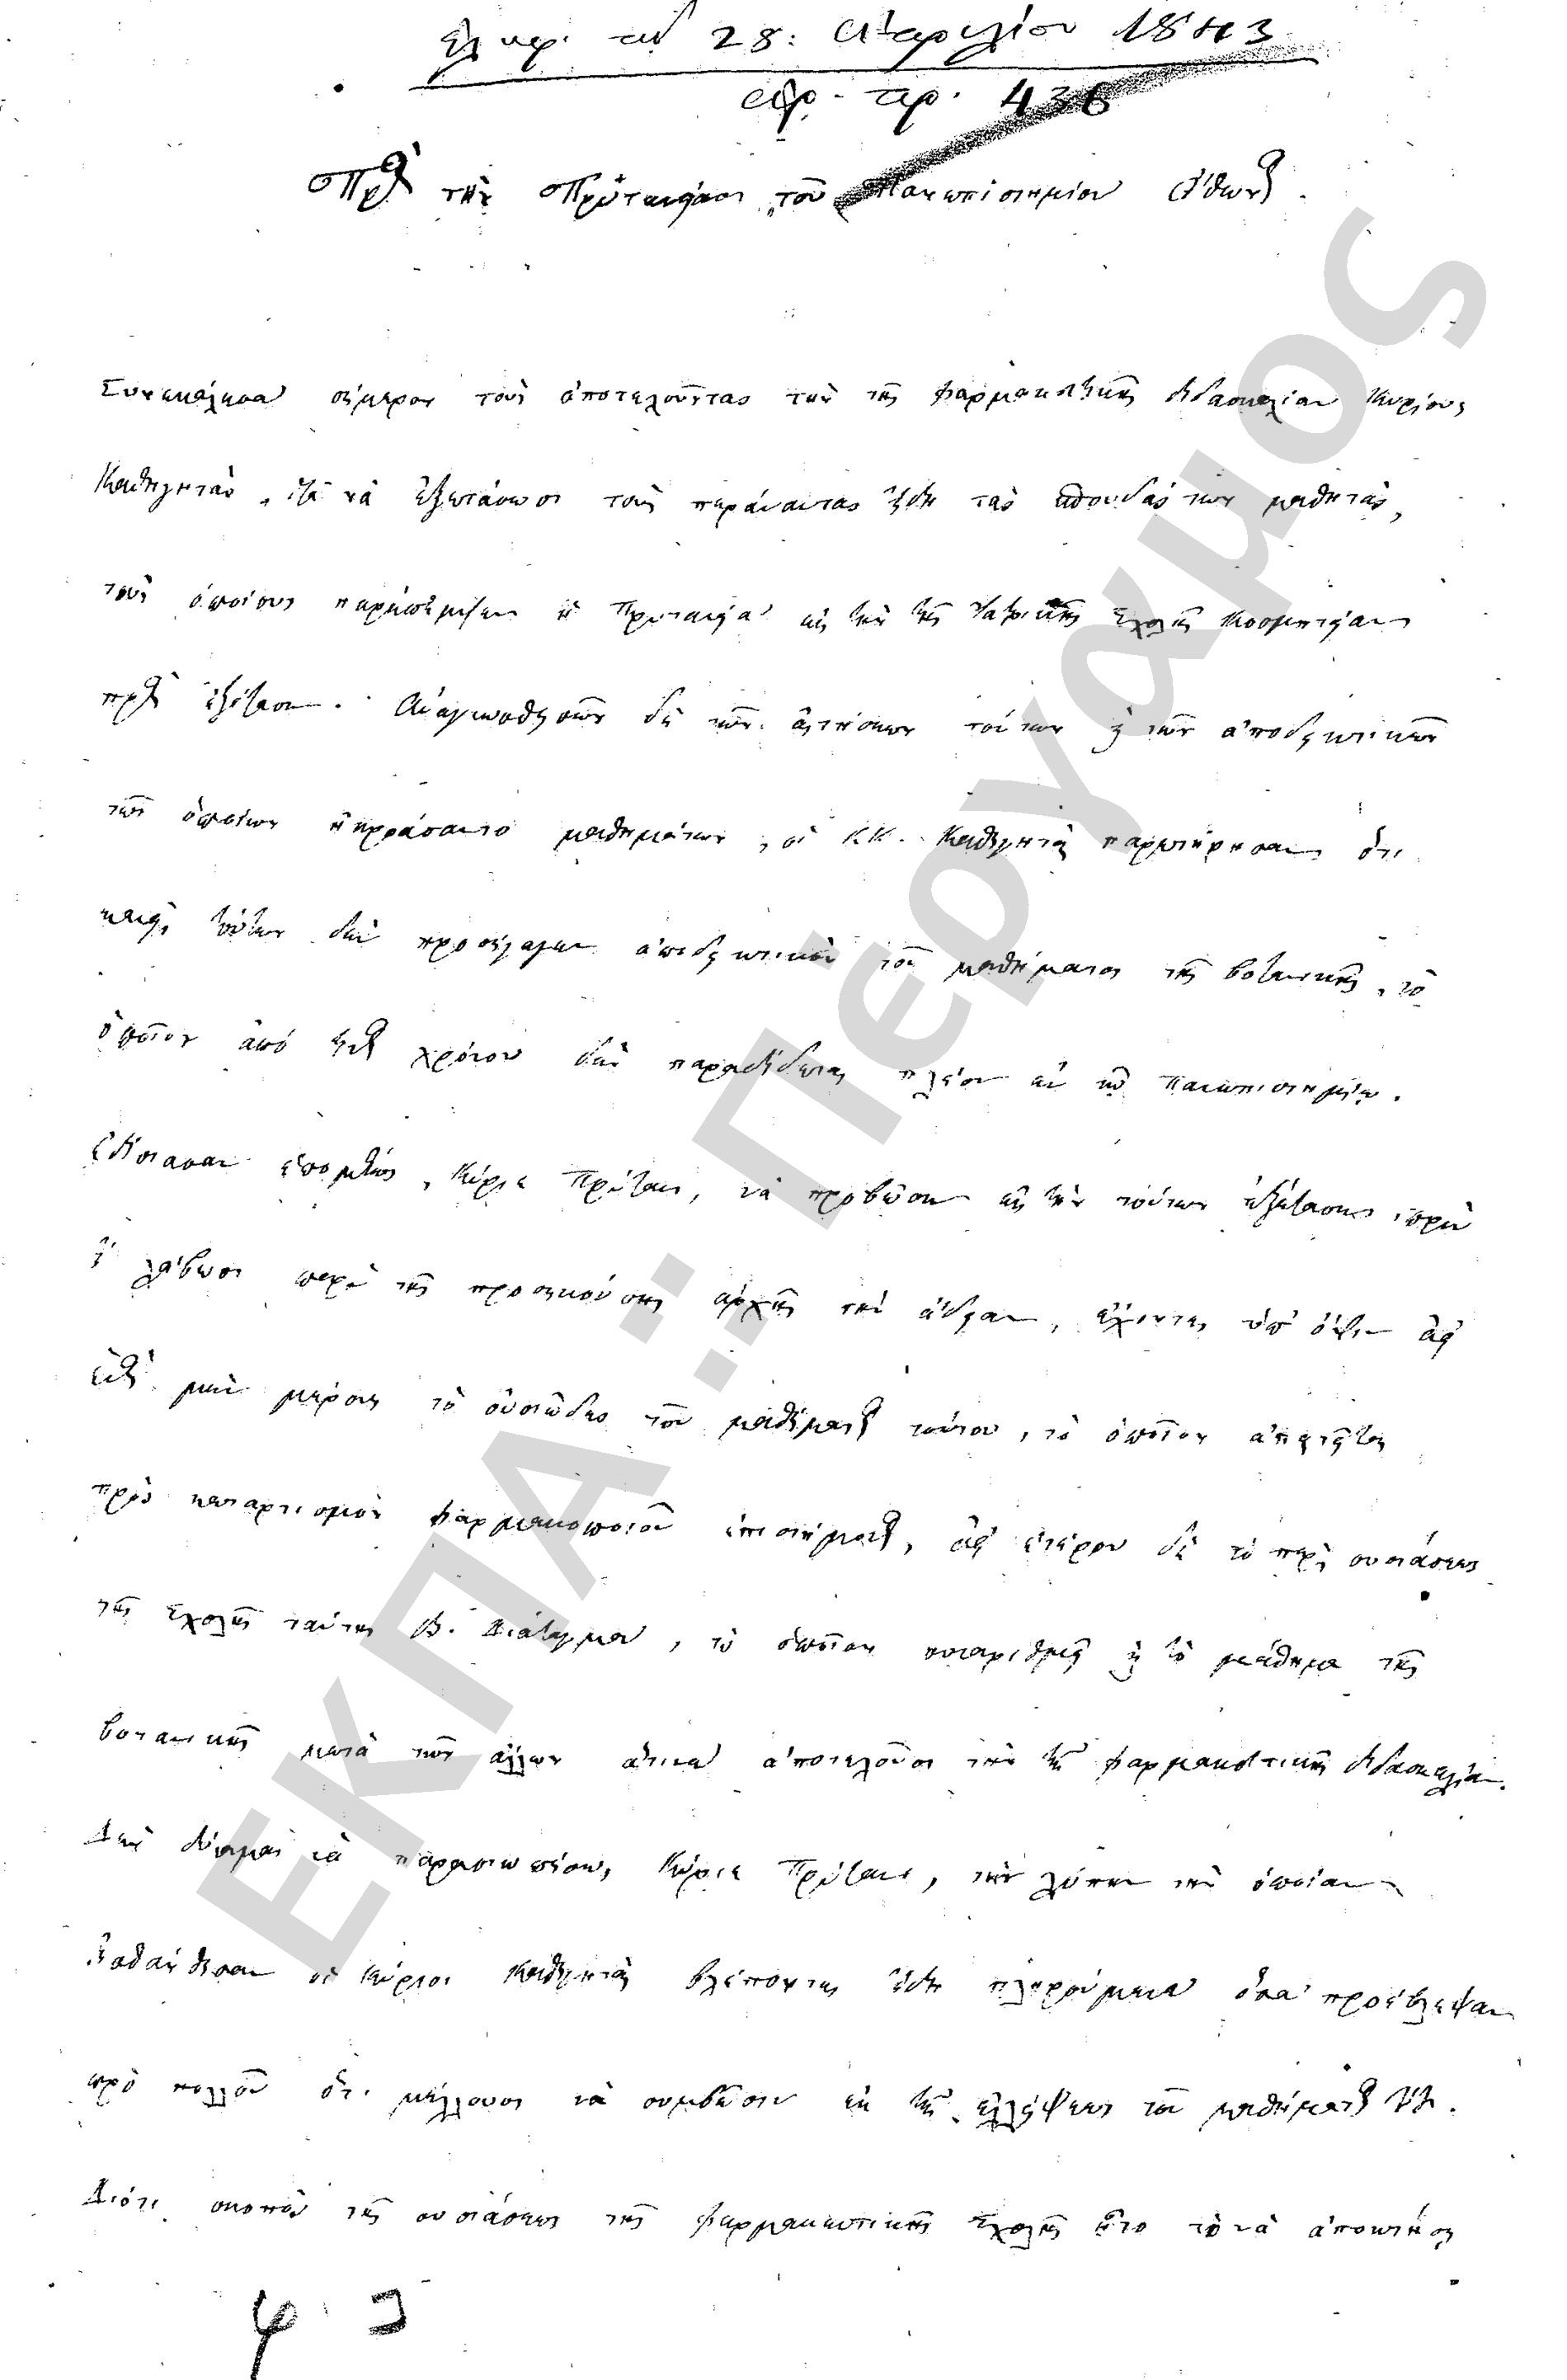 ἐλήφ. τὴν 28: Ἀπριλίου 1843
ἀρ. πρ. 436
Πρὸς τὴν Πρυτανείαν τοῦ Πανεπιστημίου Ἀθηνῶν.
Συνεκάλεσα σήμερον τοὺς ἀποτελοῦντας τὴν τῆς φαρμακευτικῆς διδασκαλίαν Κυρίους
Καθηγητὰς, ἵνα νὰ ἐξετάσωσι τοὺς περάναντας ἤδη τὰς σπουδάς των μαθητὰς,
τοὺς ὁποίους παρέπεμψεν ἡ Πρυτανεία εἰς τὴν τῆς Ἰατρικῆς Σχολῆς Κοσμητείαν
πρὸς ἐξέτασιν. Ἀναγνωσθεισῶν δὲ τῶν αἰτήσεων τούτων καὶ τῶν ἀποδεικτικῶν
τῶν ὁποίων ἠκροάσαντο μαθημάτων, οἱ ΚΚ. Καθηγηταὶ παρετήρησαν ὅτι
κανεὶς τούτων δὲν προσήγαγεν ἀποδεικτικὸν τοῦ μαθήματος τῆς βοτανικῆς, τὸ
ὁποῖον ἀπὸ χρόνου δὲν παραδίδεται πλέον ἐν τῷ Πανεπιστημίῳ.
Ἐδίστασαν ἑπομένως, Κύριε Πρύτανι, νὰ προβῶσιν εἰς τὴν τούτων ἐξέτασιν, πρὶν
ἢ λάβωσι περὶ τῆς προσηκούσης ἀρχῆς τὴν ἄδειαν, ἔχοντες ὑπ' ὄψιν ἀφ'
ἑνὸς μὲν μέρους τὸ οὐσιῶδες τοῦ μαθήματος τούτου, τὸ ὁποῖον ἀπαιτεῖται
πρὸς καταρτισμὸν φαρμακοποιοῦ ἐπιστήμονος, ἀφ' ἑτέρου δὲ τὸ περὶ συστάσεως
τῆς Σχολῆς ταύτης Β. Διάταγμα, τὸ ὁποῖον συναριθμεῖ καὶ τὸ μάθημα τῆς
βοτανικῆς μετὰ τῶν ἄλλων ἅτινα ἀποτελοῦσι τὴν τῆς φαρμακευτικῆς διδασκαλίαν.
Δὲν δύναμαι νὰ παρασιωπήσω, Κύριε Πρύτανι, τὴν λύπην τὴν ὁποίαν
ᾐσθάνθησαν οἱ Κύριοι Καθηγηταὶ βλέποντες ἤδη πληρούμενα ὅσα προέβλεψαν
πρὸ πολλοῦ ὅτι μέλλουσι νὰ συμβῶσιν ἐκ τῆς ἐλλείψεως τοῦ μαθήματος
Διότι σκοπὸς τῆς συστάσεως τῆς φαρμακευτικῆς Σχολῆς ἦτο τὸ νὰ ἀποκτήσῃ
ΕΚΠΑ :: Πέργαμος